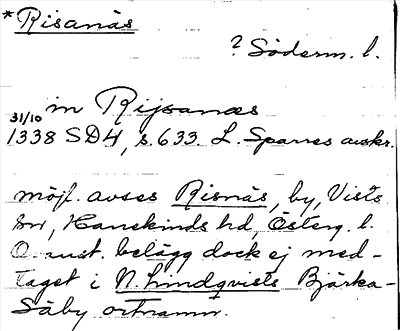 *Risanäs
? Söderm. l.
in Rijsanæs
31/10
1338 SD4, s. 633. L. Sparres avskr.
möjl. avses Risnäs, by, Vists
sn, Hanekinds hd, Österg. l.
O. anst. belägg dock ej med-
taget i N. Lindqvists Bjärka-
Säby ortnamn.